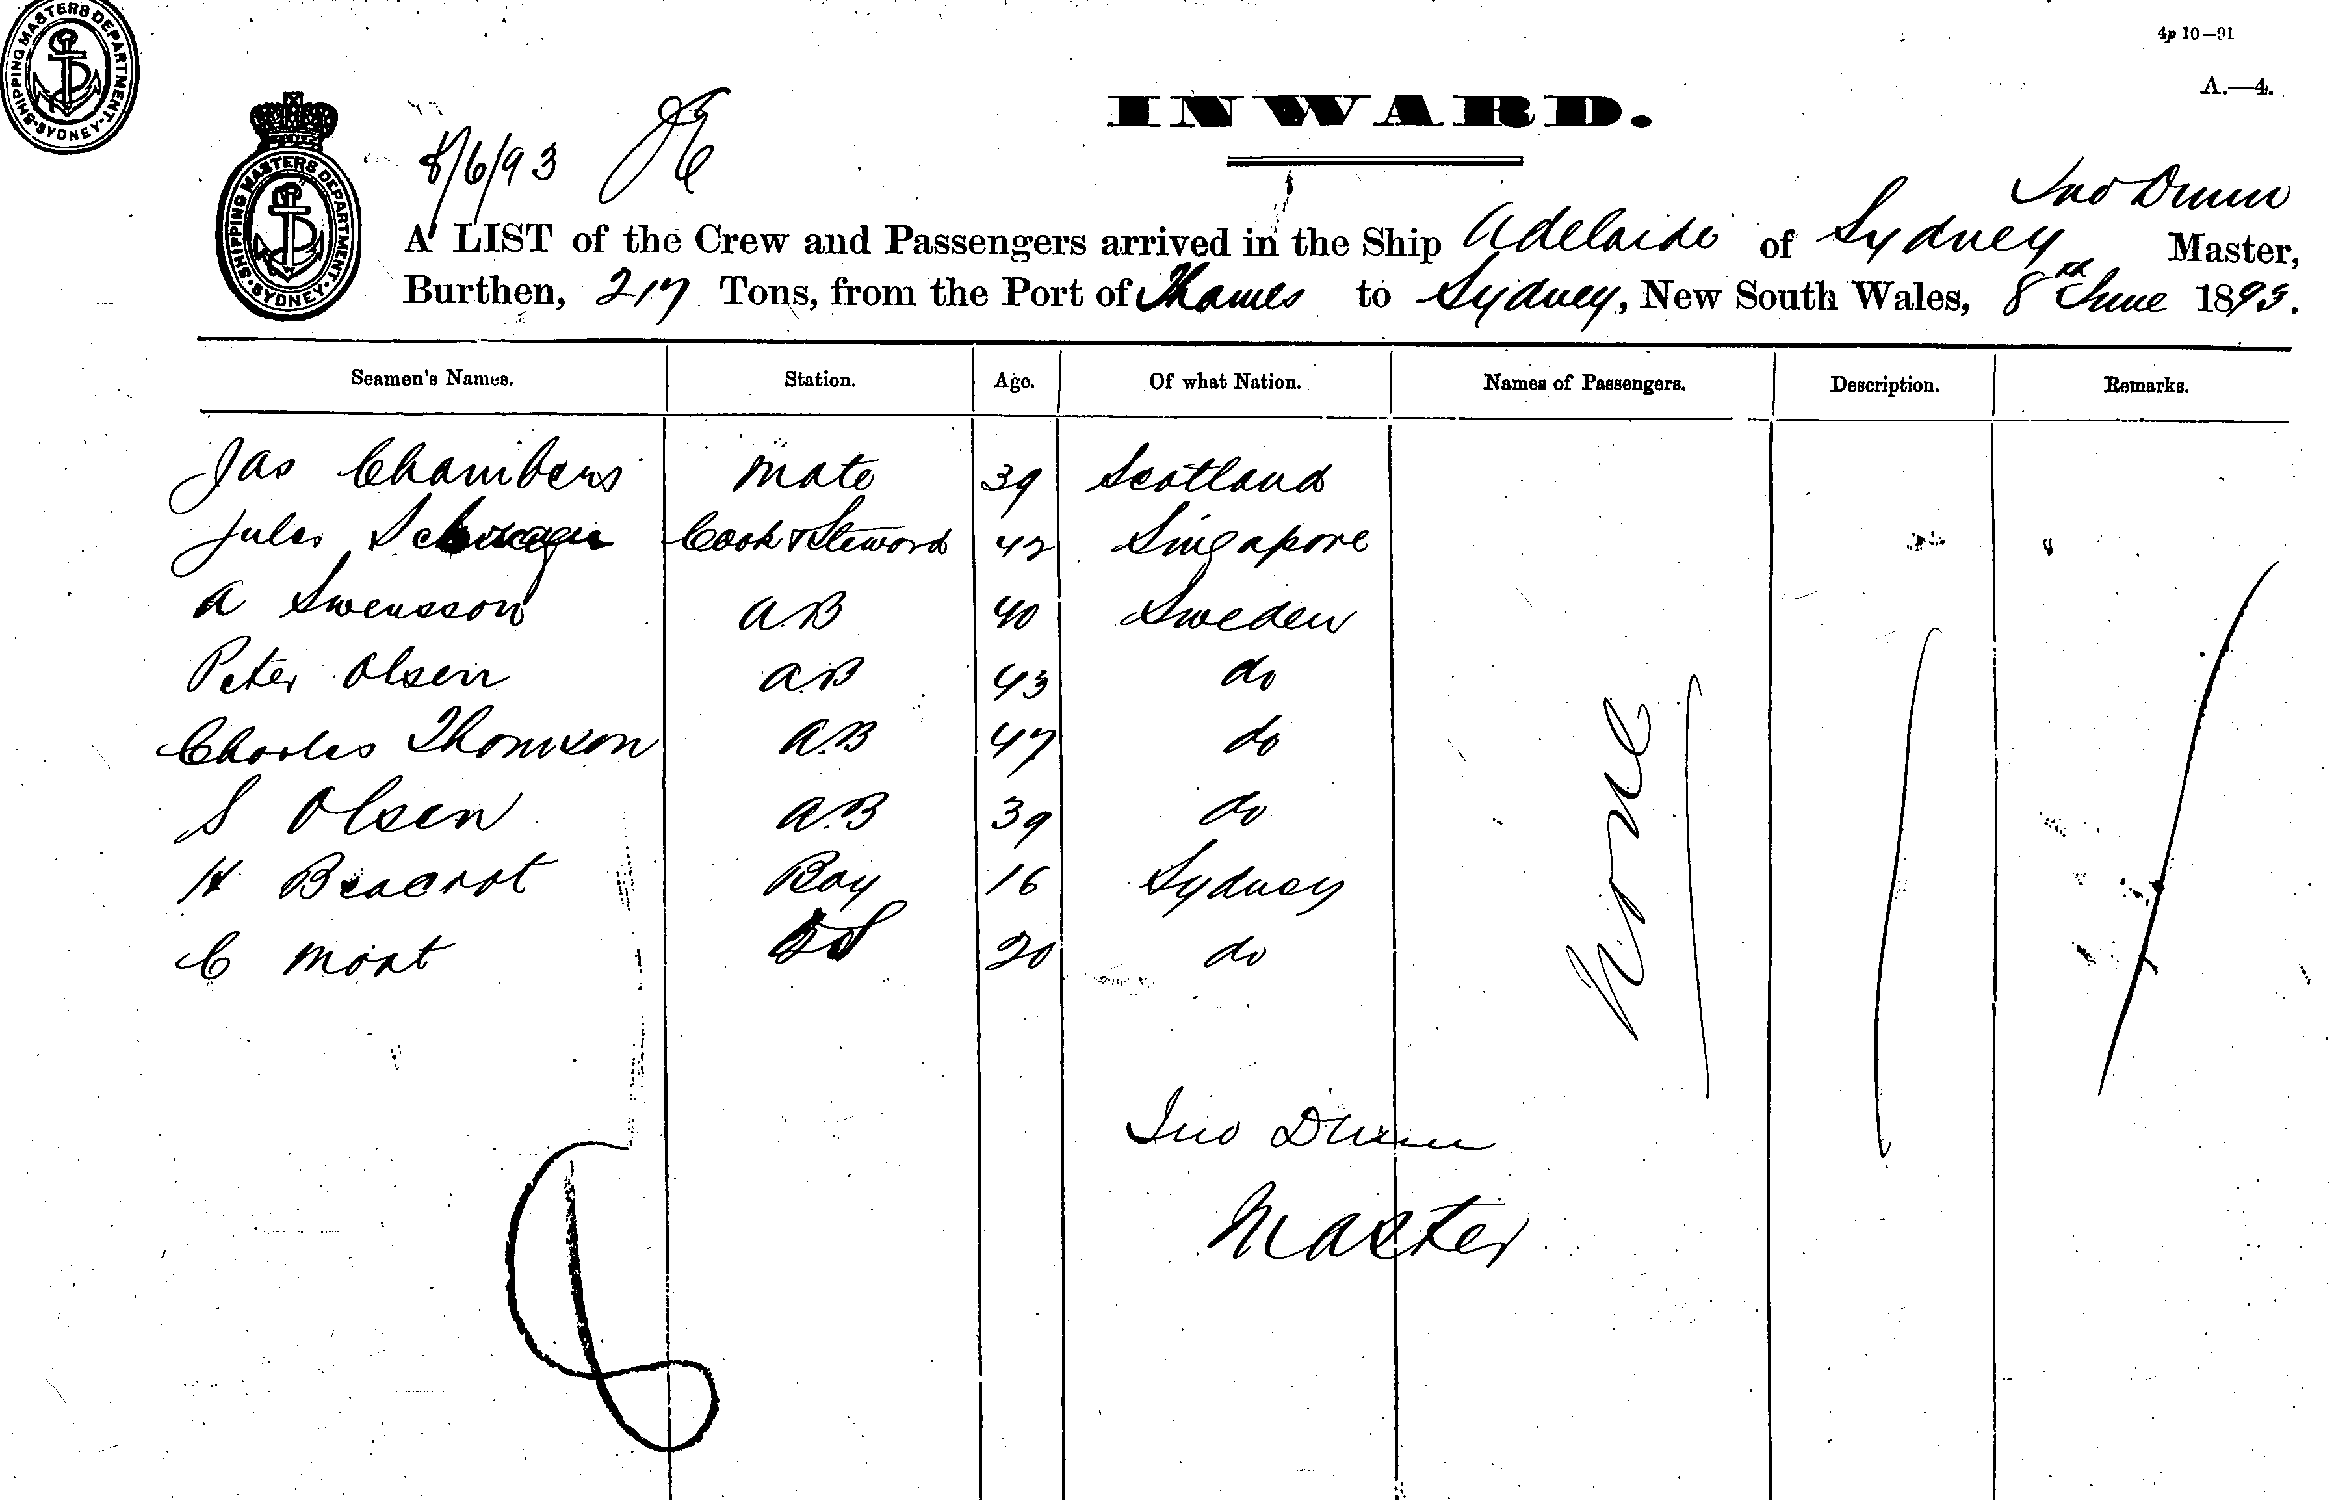 SHIPPING MASTERS DEPARTMENT SYDNEY
4p 10—91
A.—4.
INWARD.
SHIPPING MASTERS DEPARTMENT SYDNEY
8/6/93
Jno Dunn
A LIST of the Crew and Passengers arrived in the Ship Adelaide of Sydney Master,
Burthen, 217 Tons, from the Port of Thames to Sydney, New South Wales, 8th June 1893.
Seamen's Names. Station. Age. Of what Nation. Names of Passengers. Description. Remarks.
Jas Chambers Mate 39 Scotland
Jules Cook & Steward 42 Singapore
A Swensson AB 40 Sweden
Peter Olsen AB 43 do
Charles Thomson A.B 47 do
S Olsen A.B 39 do
H Boy 16 Sydney
C Moat 20 do
None
Jno Dunn
Master